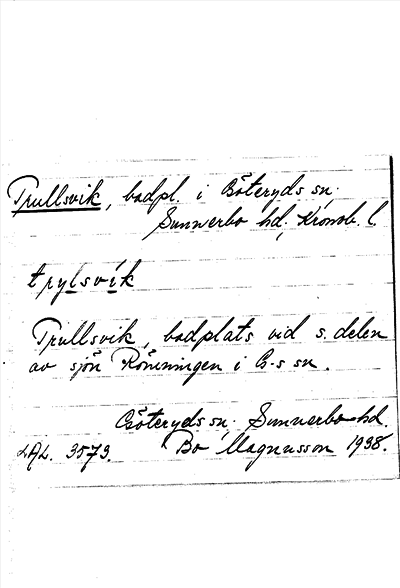 Trullsvik, badpl. i Göteryds sn.
Sunnerbo hd, Kronob. l.
trylsvík
Trullsvik, badplats vid s. delen
av sjön Römningen i G-s sn.
Göteryds sn. Sunnerbo hd.
LAL. 3573. Bo Magnusson 1938.